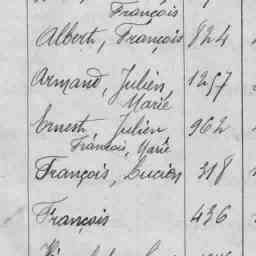 François
Albert, François 824
Armand, Julien 1257
Marie
Ernest, Julien 962
François, Marie
François, Lucien 318
François 436